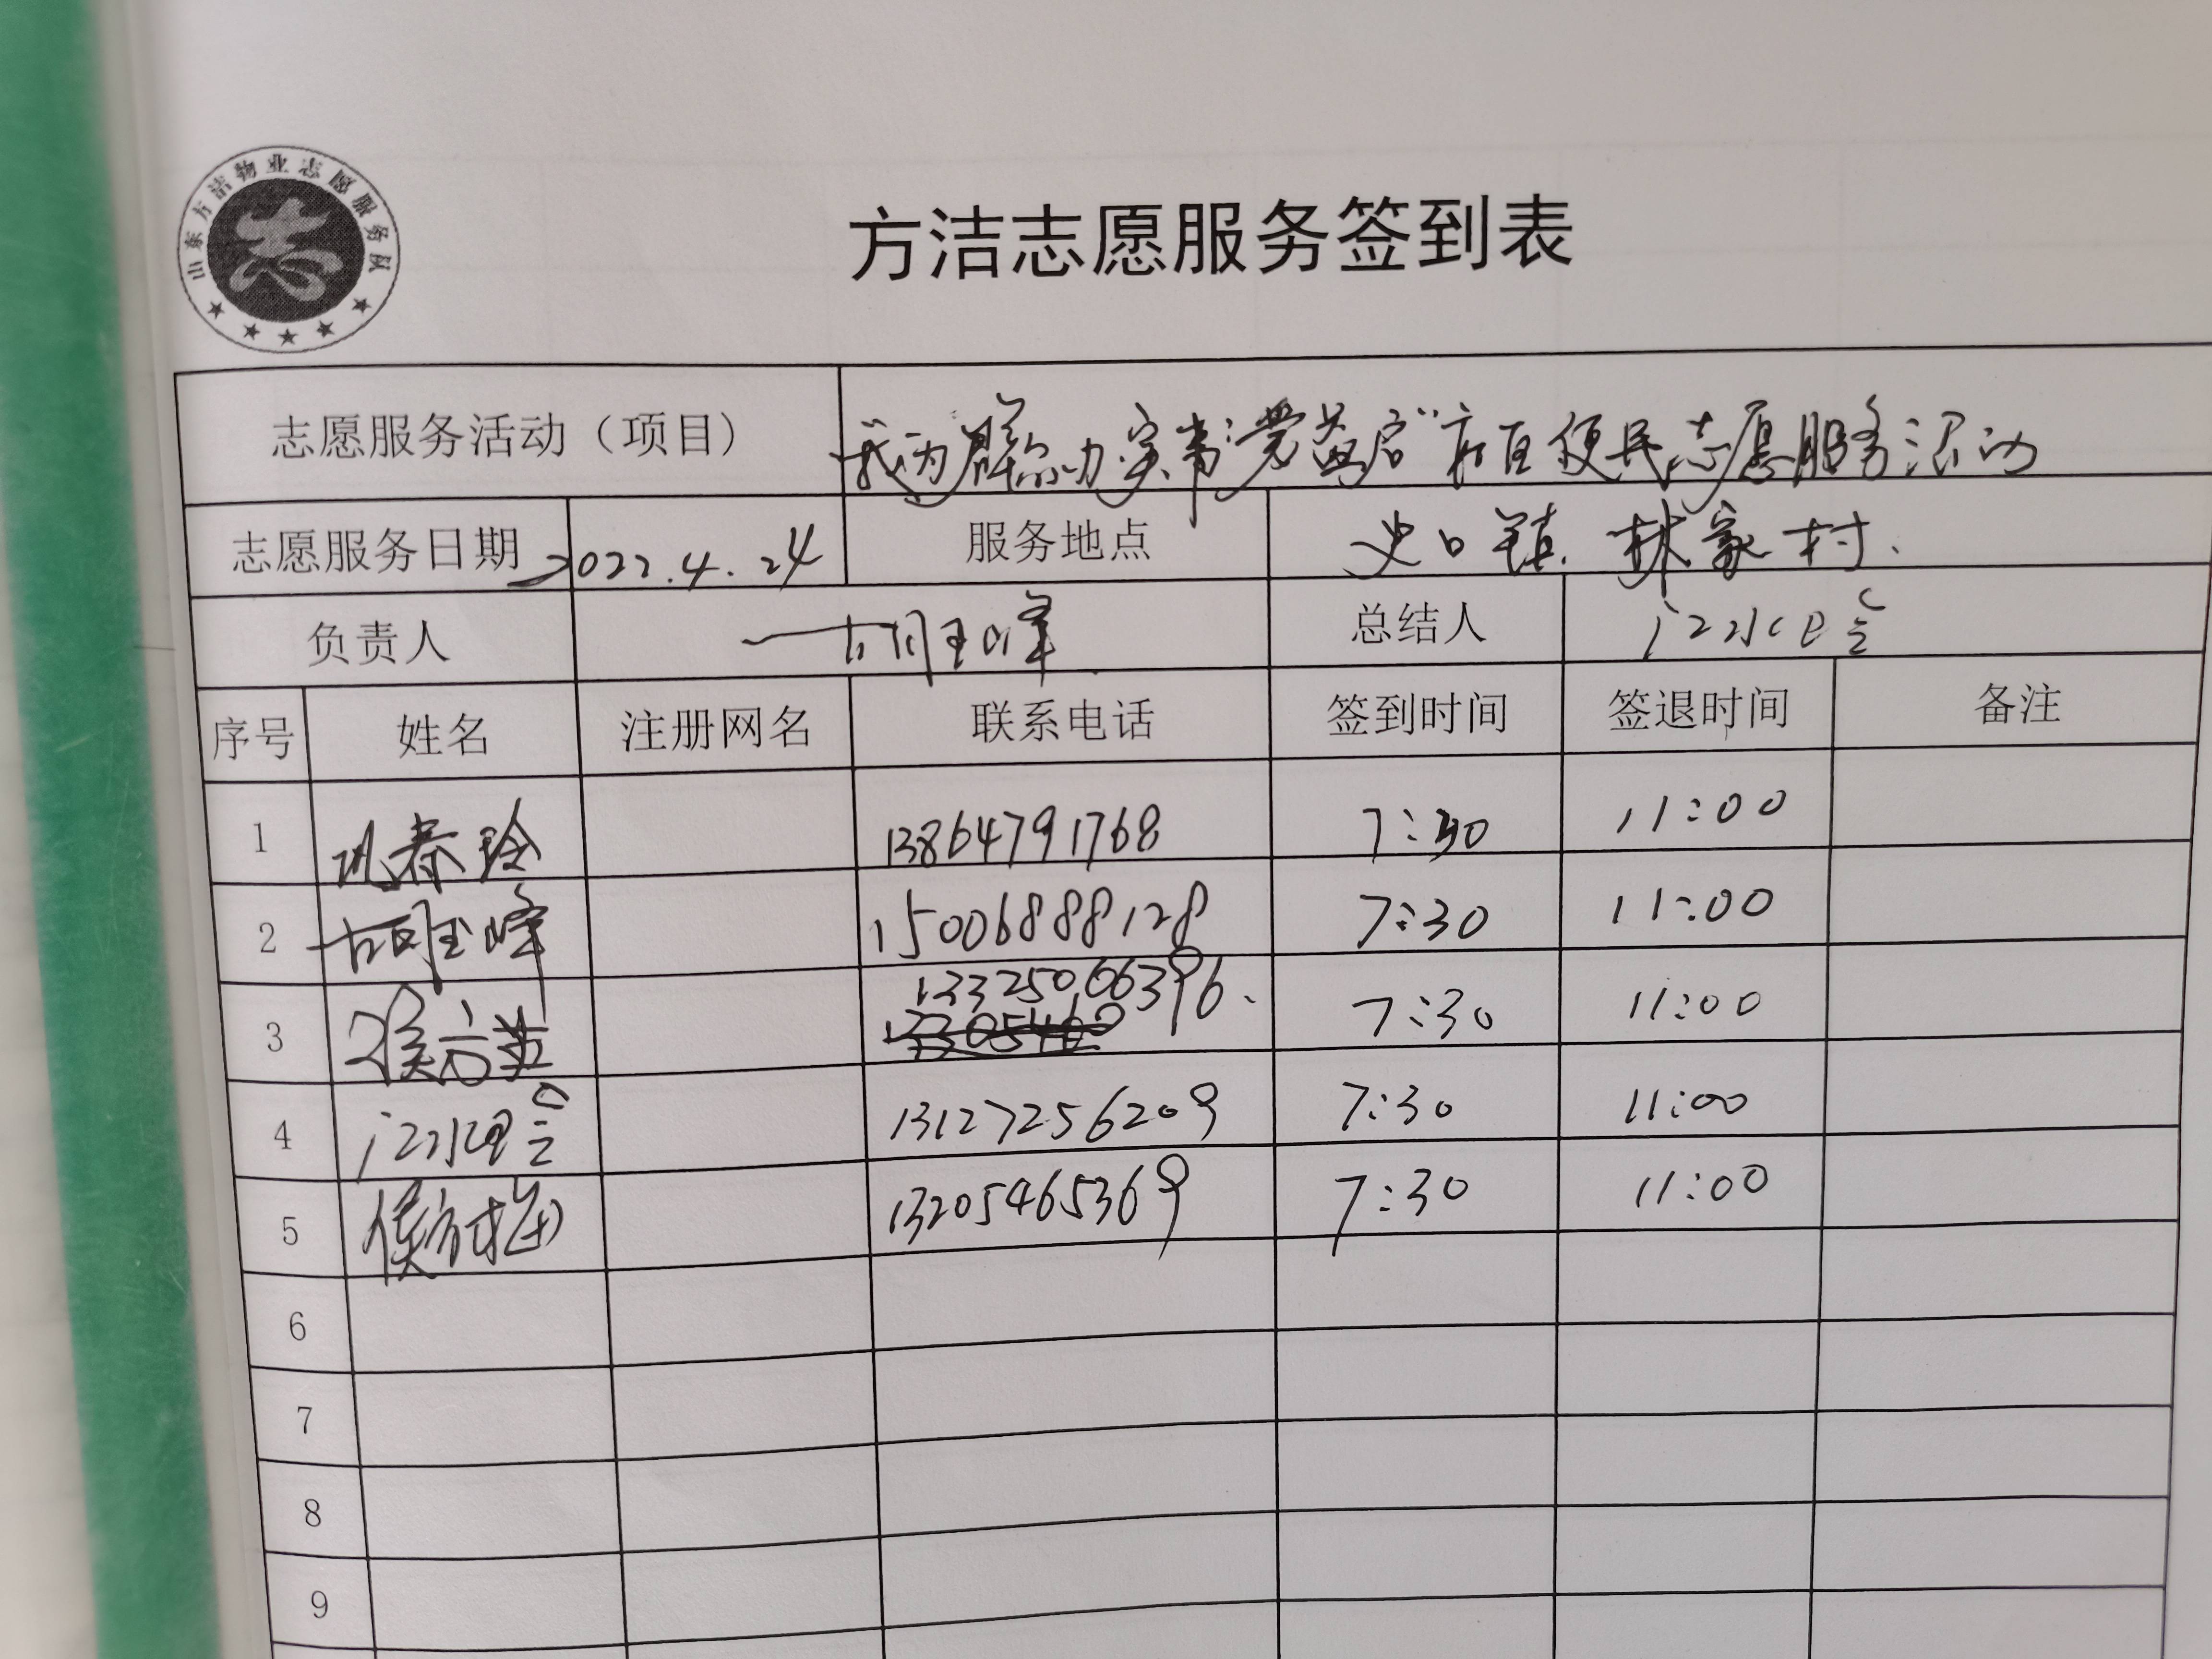 山东方洁物业志愿服务队
方洁志愿服务签到表
志愿服务活动（项目） 我为群众办实事 便民志愿服务活动
志愿服务日期 2022.4.24 服务地点 史口镇 林家村
负责人 胡玉峰 总结人
序号 姓名 注册网名 联系电话 签到时间 签退时间 备注
1 巩春玲 13864791768 7:30 11:00
2 胡玉峰 15006888128 7:30 11:00
3 13325066396 7:30 11:00
4 13127256209 7:30 11:00
5 侯方梅 13205465369 7:30 11:00
6
7
8
9